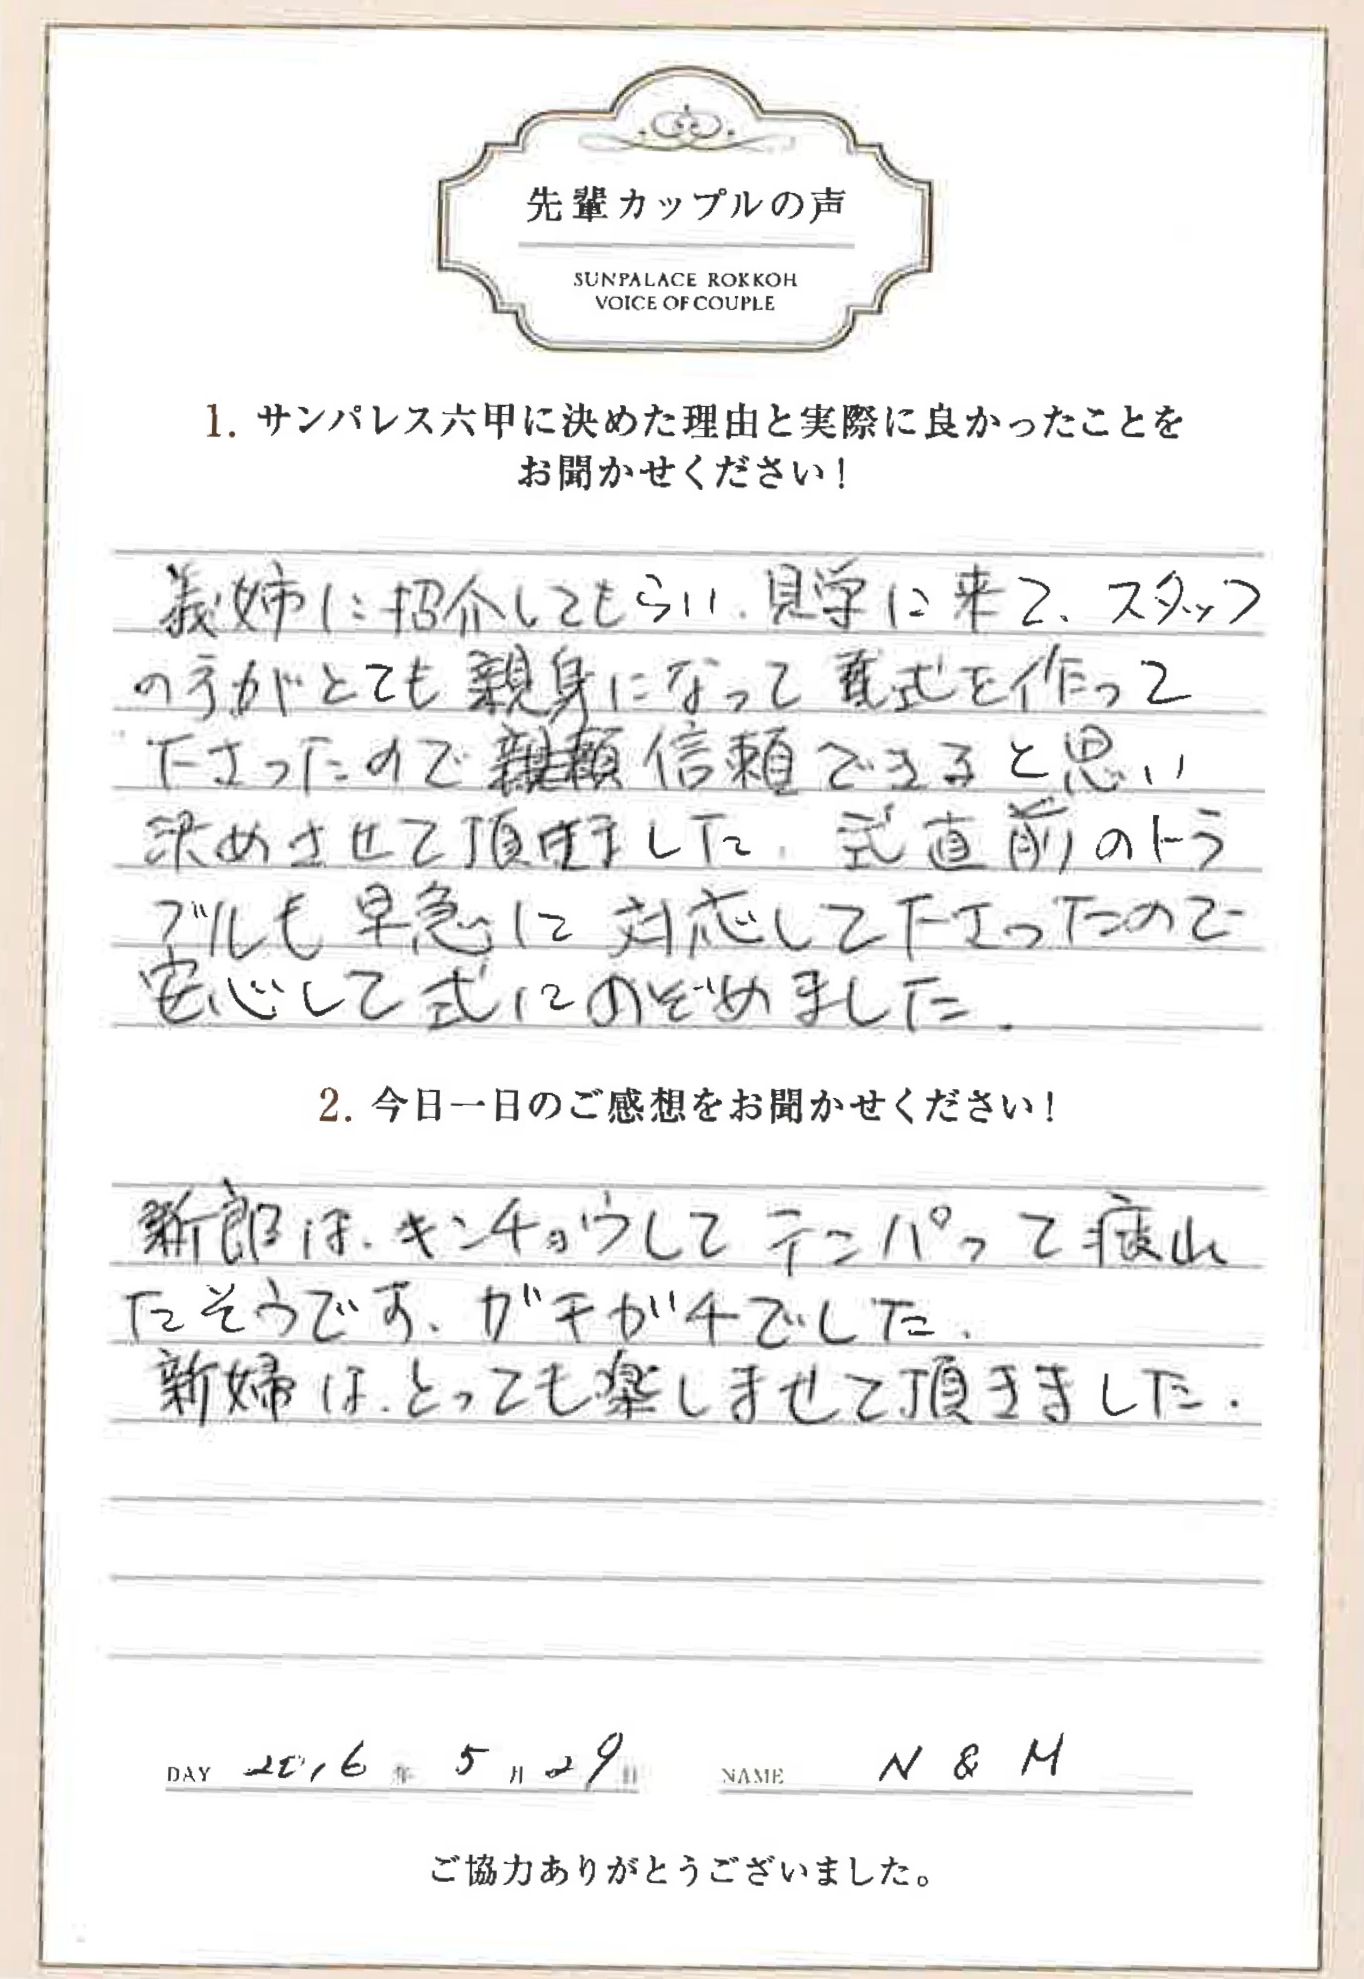 先輩カップルの声
SUNPALACE ROKKOH
VOICE OF COUPLE
1. サンパレス六甲に決めた理由と実際に良かったことを
お聞かせください！
義姉に招介してもらい、見学に来て、スタッフ
の方がとても親身になって 式を作って
下さったので 信頼できると思い
決めさせて頂きました。式直前のトラ
ブルも早急に対応して下さったので
安心して式にのぞめました。
2. 今日一日のご感想をお聞かせください！
新郎は、キンチョウしてテンパって疲れ
たそうです。ガチガチでした。
新婦は、とっても楽しませて頂きました。
DAY 2016 年 5 月 29 日 NAME N & M
ご協力ありがとうございました。